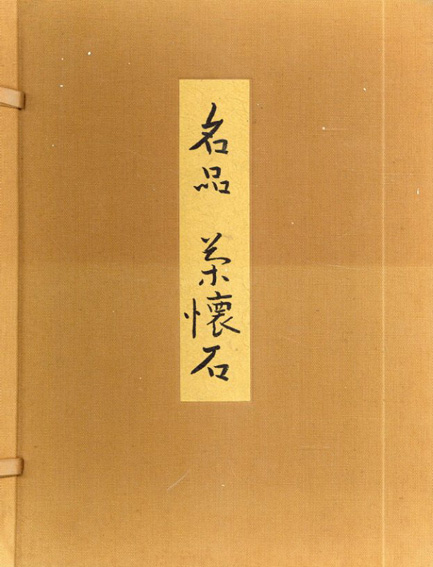 名品 茶懐石